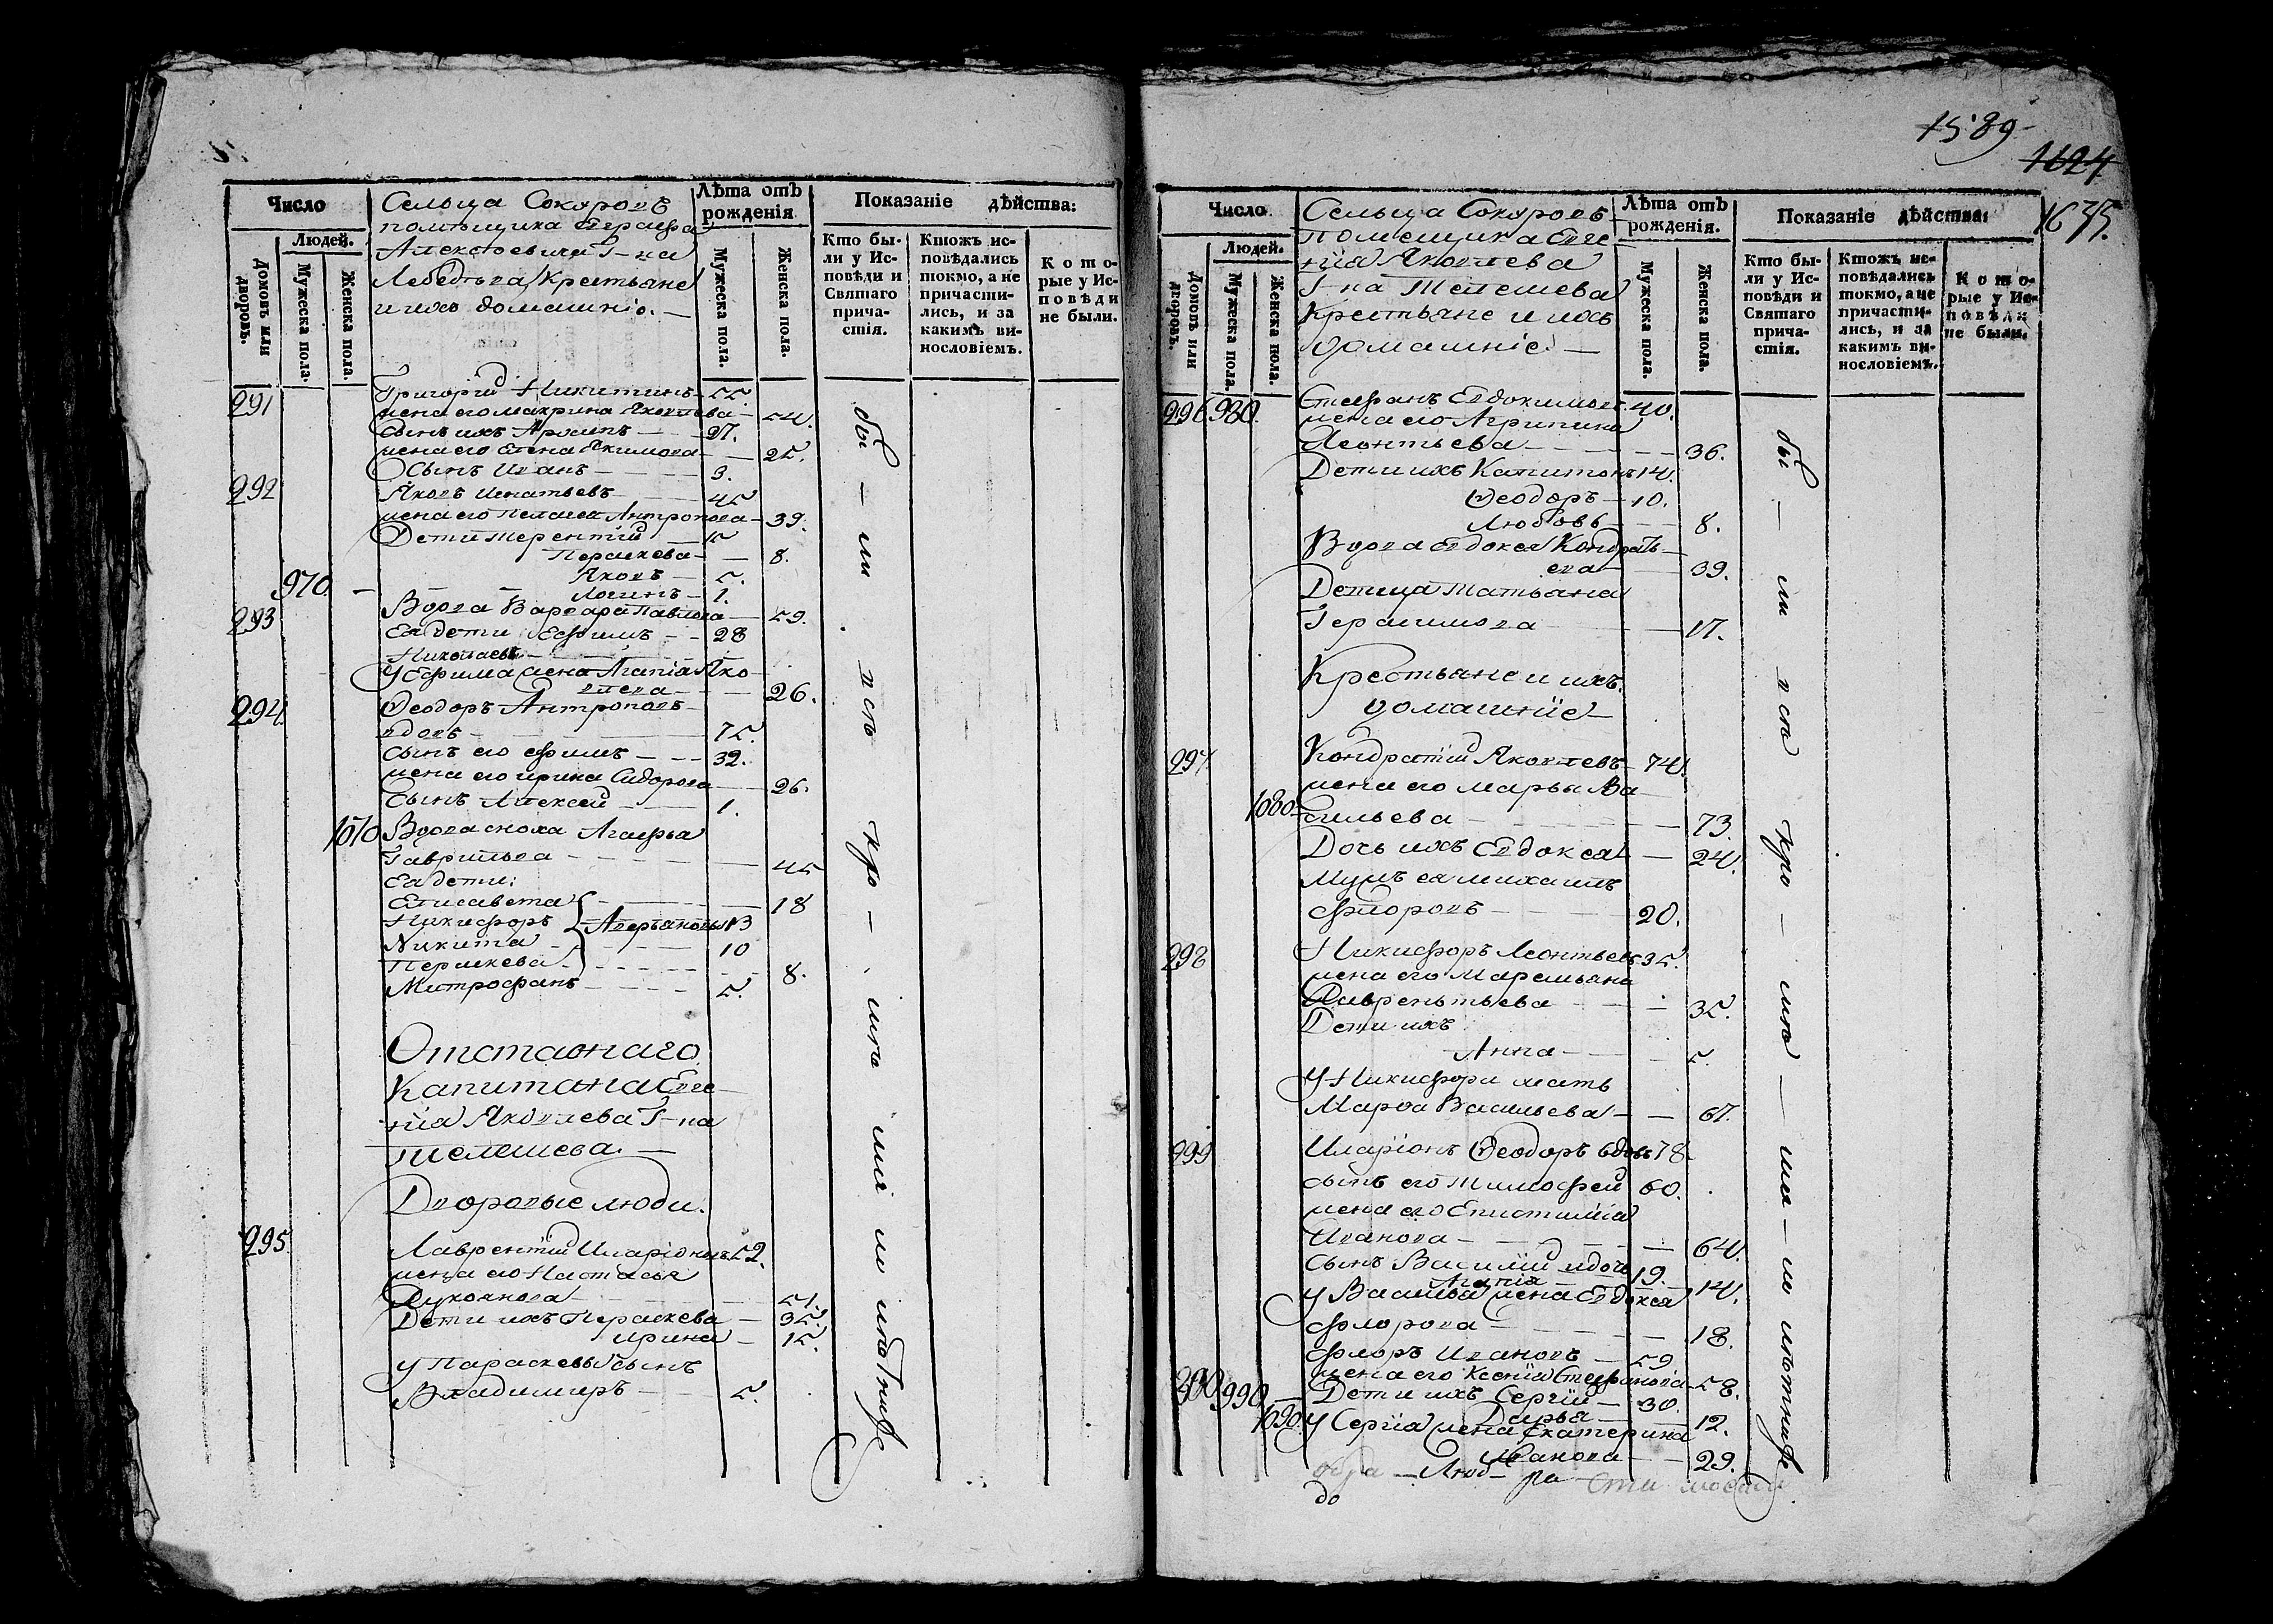 Число
Людей.
Домовъ или дворовъ.
Мужеска пола.
Женска пола.
Сельца Сокуровъ
помѣщика Евграфа
Алексѣевича Г-на
Лебедѣва Крестьяне
и ихъ домашніе. —
Лѣта отъ рожденія
Мужеска пола.
Женска пола.
Показаніе дѣйства:
Кто бы-
ли у Ис-
повѣди и
Святаго
прича-
стія.
Ктожъ ис-
повѣдались
токмо, а не
причасти-
лись, и за
какимъ ви-
нословіемъ.
Кото-
рые у Ис-
повѣди
не были.
291 Григорій Никитинъ 55.
жена его Макрина Яковлева — 54.
сынъ ихъ Архипъ — 27.
жена его Елена Якимова — 25.
Сынъ Иванъ — 3.
292 Яковъ Игнатьевъ — 45
жена его Пелагея Антропова — 39.
Дети Терентій — 15
Параскева — 8.
Яковъ — 5.
970. — Логинъ — 1.
293 Вдова Варвара Павлова — 59.
Ея дети Ефимъ — 28
Николаевъ —
У Ефима жена Агапія Яко-
влева — 26.
294 Ѳеодоръ Антроповъ
вдовъ — 75.
Сынъ его Ефимъ — 32.
жена его Ирина Сидорова — 26.
Сынъ Алексей — 1.
1070 Вдова сноха Агафья
Гаврилова — 45
Ея дети:
Елисавета — 18
Никифоръ Аверьяновы 13
Никита — 10
Параскева — 8.
Митрофанъ — 5.
Отставнаго
Капитана Евге-
нія Яковлева Г-на
Телешева. —
Дворовые люди.
295. Лаврентій Иларіоновъ 52.
жена его Настасья
Лукоянова — 51.
Дети ихъ Параскева — 35.
Ирина — 15.
У Параскевы сынъ
Владимиръ — 5.
бы — ли
1589
1624
1635.
Число
Людей.
Домовъ или дворовъ.
Мужеска пола.
Женска пола.
Сельца Сокуровъ
помещика Евге-
нія Яковлева
Г-на Телешева
Крестьяне и ихъ
домашніе. —
Лѣта отъ рожденія.
Мужеска пола.
Женска пола.
Показаніе дѣйства:
Кто бы-
ли у Ис-
повѣди и
Святаго
прича-
стія.
Ктожъ ис-
повѣдались
токмо, а не
причасти-
лись, и за
какимъ ви-
нословіемъ.
Кото-
рые у Ис-
повѣди
не были.
296 980. Стефанъ Евдокимовъ 40.
жена его Агрипина
Леонтьева — 36.
Дети ихъ Капитонъ 14.
Ѳеодоръ — 10.
Любовь — 8.
Вдова Евдокея Кондрать-
ева — 39.
Девица Татьяна
Герасимова — 17.
Крестьяне и ихъ
домашніе —
297 Кондратій Яковлевъ — 74.
жена его Марья Ва-
1080 сильева — 73.
Дочь ихъ Евдокея — 24.
Мужъ ея Михаилъ
Фроловъ — 20.
298 Никифоръ Леонтьевъ 35.
жена его Маремьяна
Лаврентьева — 35.
Дети ихъ
Анна — 5.
У Никифора мать
Марѳа Васильева — 67.
299 Иларіонъ Ѳеодоръ вдовъ 78.
сынъ его Тимофей 60.
жена его Епистимія
Иванова — 64.
Сынъ Василій 19.
Агапія — 14.
У Василья жена Евдокея
Флорова — 18.
Флоръ Ивановъ — 59
300 жена его Ксенія Стефанова 58.
990 Дети ихъ Сергій — 30.
Дарья — 12.
1090 У Сергія жена Екатерина
Иванова — 29.
бы — ли